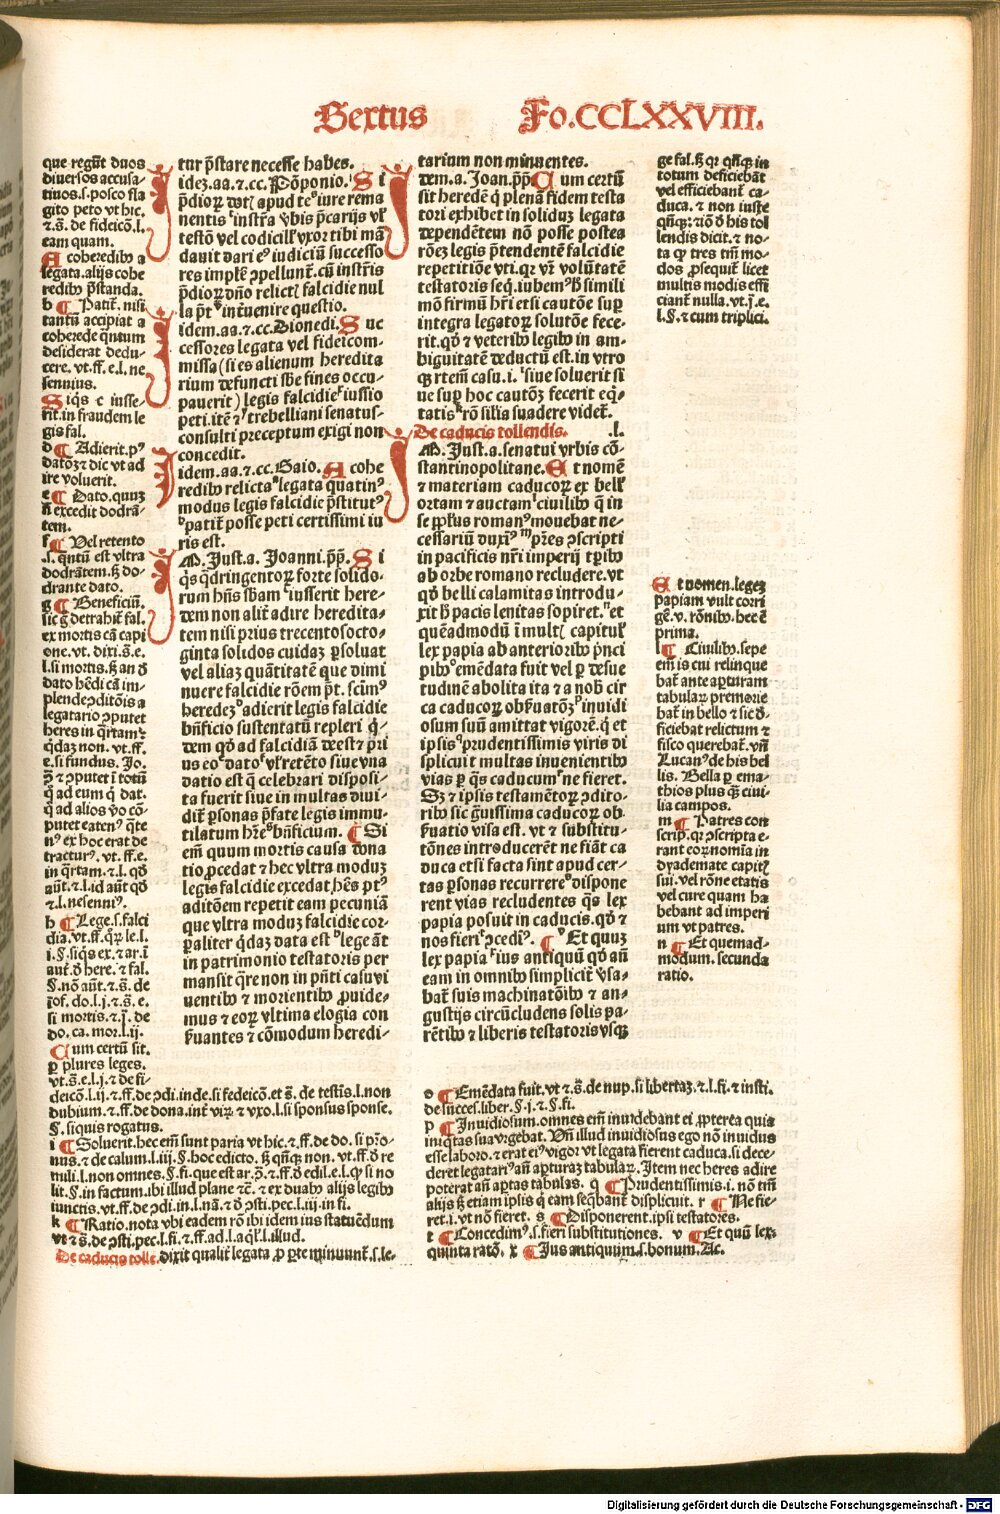 Sextus Fo.CCLXXVIII.
que regūt duos
diuersos accusa-
tiuos.s.posco fla
gito peto vt hic.
⁊.s̄. de fideicō.l.
eam quam.
A coheredib⁹ a
legata.alijs cohe
redib⁹ p̄standa.
b ¶ Patit̄. nisi
tantū accipiat a
coherede q̄ntum
desiderat dedu-
cere. vt.ff.e.l. ne
sennius.
Siq̄s e iusse-
rit.in fraudem le
gis fal.
d ¶ Adierit.p⁹
datōȝ ⁊ dic vt ad
ire voluerit.
e ¶ Dato.quuȝ
n̄ excedit dodrā-
tem.
f ¶ Vel retento
.s. q̄ntū est vltra
dodrātem.sȝ do-
drante dato.
g ¶ Beneficiū.
sic ḡ detrahit̄ fal.
ex mortis cā capi
one. vt. dixi.s̄.e.
l.si mortis.sȝ an đ
dato hēdi cā im-
plende ɔditōis a
legatario ɔputet
heres in q̄rtam ⁊
q̄daȝ non. vt.ff.
e.si fundus. Jo.
p̄ ⁊ ɔputet ī totū
q̄ ad eum q̄ dat.
q̄ ad alios v̄o cō-
putet eaten⁹ q̄te
n⁹ ex hoc erat de
tractur⁹. vt. ff.e.
in q̄rtam.⁊.l. qđ
aūt.⁊.l.id aūt qđ
⁊.l.nesenni⁹.
h ¶ Lege.s.falci
dia.vt.ff.q̄ꝝ le.l.
i.§.siq̄s ex.⁊ ar.ī
aut̄.đ here. ⁊ fal.
§.nō aūt.⁊.s̄. de
īof. do.l.j.⁊.s̄. e.
si mortis.⁊.j̄. de
do. ca. mor.l.ij.
Cum certū sit.
ꝑ plures leges.
vt.s̄.e.l.j.⁊ de fi-
deicō.l.ij.⁊.ff.de ɔdi.inde.si fedeicō.et s̄. de testīs.l.non
dubium.⁊.ff.de dona.int̄ viꝝ ⁊ vxo.l.si sponsus sponse.
§.siquis rogatus.
i ¶ Soluerit.hec em̄ sunt paria vt hic.⁊.ff.de do.si pro-
nus.⁊ de calum.l.iij.§.hoc edicto.sȝ q̄nq̄ȝ non.vt.ff.đ re
mili.l.non omnes.§.fi.que est ar.p̄.⁊.ff.đ edil.e.l.ꝙ si no
lit.§.in factum.ibi illud plane tc̄. ⁊ ex duab⁹ alijs legib⁹
iunctis.vt.ff.de ɔdi.in.l.nā.⁊ đ ɔsti.pec.l.iij.in fi.
k ¶ Ratio.nota vbi eadem rō ibi idem ius statuēdum
vt ⁊ s̄.de ɔsti.pec.l.fi.⁊.ff.ad.l.aq̄l.l.illud.
De caducis tolle. dixit qualit̄ legata ꝓ ꝑte minuunt̄.s.le-
tur p̄stare necesse habes.
Jideȝ.aa.⁊.cc. Pōponio. Si
p̄dioꝝ dotꝭ apud te iure rema
nentis instr̄a vbis p̄carijs vł
testō vel codicilł vxor tibi mā
dauit dari eᵒ iudiciū successo
res implē ɔpellunt̄.cū instr̄is
p̄dioꝝ dn̄o relictꝭ falcidie nul
la p̄t int̄uenire questio.
Jidem.aa.⁊.cc.Dionedi. Suc
cessores legata vel fideicom-
missa(si es alienum heredita
rium defuncti sb̄e fines occu-
pauerit) legis falcidie iussio
peti.itē ⁊ trebelliani senatus-
consulti preceptum exigi non
concedit.
Jidem.aa.⁊.cc. Gaio. A cohe
redib⁹ relicta legata quatin⁹
modus legis falcidie p̄stitut⁹
patit̄ posse peti certissimi iu
ris est.
JM. Just.a. Joanni.p̄p. Si
q̄s q̄dringentoꝝ forte solido-
rum hn̄s sbam iusserit here-
dem non alit̄ adire heredita-
tem nisi prius trecentosocto-
ginta solidos cuidaȝ ꝑsoluat
vel aliaȝ quātitatē que dimi
nuere falcidie rōem p̄t. scim⁹
heredeȝ adierit legis falcidie
bn̄ficio sustentatū repleri q̄-
dem qđ ad falcidiā deest ⁊ pri
us eo dato vł retēto siue vna
datio est q̄ celebrari disposi-
ta fuerit siue in multas diui-
dit̄ ꝑsonas p̄fate legis immu-
tilatum hr̄e bn̄ficium. ¶ Si
em̄ quum mortis causa dona
tio ꝓcedat ⁊ hec vltra moduȝ
legis falcidie excedat.hēs pt⁹
aditōem repetit eam pecuniā
que vltra moduȝ falcidie cor
paliter q̄daȝ data est lege āt
in patrimonio testatoris per
mansit q̄re non in pn̄ti casu vi
uentib⁹ ⁊ morientib⁹ ꝓuide-
mus ⁊ eoꝝ vltima elogia con
ẜuantes ⁊ cōmodum heredi-
tarium non minuentes.
Jdem.a. Joan.p̄p̄ Cum certū
sit heredē q̄ plenā fidem testa
tori exhibet in soliduȝ legata
dependētem nō posse postea
rōeȝ legis p̄tendentē falcidie
repetitiōe vti.qꝛ vr̄ volūtatē
testatoris seq̄.iubem⁹ b̄ simili
mō firmū hr̄i etsi cautōe suꝑ
integra legatoꝝ solutōe fece-
rit.qđ ⁊ veterib⁹ legib⁹ in am-
biguitatē deductū est.in vtro
qȝ rtem̄ casu.i. siue soluerit si
ue suꝑ hoc cautōȝ fecerit eq̄-
tatis rō silis suadere videt̄.
De caducis tollendis. .l.
JM. Just.a.senatui vrbis cō-
stantinopolitane. Et nomē
⁊ materiam caducoꝝ ex belł
ortam ⁊ auctam ciuilib⁹ q̄ in
se ppłus roman⁹ mouebat ne-
cessariū duxi⁹ pr̄es ɔscripti
in pacificis nr̄i imperij tꝑib⁹
ab orbe romano recludere.vt
qđ belli calamitas introdu-
xit h̄ pacis lenitas sopiret. et
quēadmodū ī multꝭ capitulꝭ
lex papia ab anteriorib⁹ p̄nci
pib⁹ emēdata fuit vel ꝑ desue
tudinē abolita ita ⁊ a nob̄ cir
ca caducoꝝ obẜuatōȝ inuidi
osum suū amittat vigorē.q̄ et
ipsis prudentissimis viris di
splicuit multas inuenientib⁹
vias ꝑ q̄s caducum ne fieret.
Sȝ ⁊ ipsis testamētoꝝ ɔdito-
rib⁹ sic ḡuissima caducoꝝ ob
ẜuatio visa est. vt ⁊ substitu-
tōnes introducerēt ne fiāt ca
duca etsi facta sint apud cer-
tas ꝑsonas recurrere dispone
rent vias recludentes q̄s lex
papia posuit in caducis.qđ ⁊
nos fieri ɔcedi⁹. ¶ Et quuȝ
lex papia ius antiquū qđ an̄
eam in omnib⁹ simplicit̄ v̄sa-
bat̄ suis machinatōib⁹ ⁊ an-
gustijs circūcludens solis pa-
rētib⁹ ⁊ liberis testatoris vsqȝ
ge fal.sȝ qꝛ q̄nq̄ȝ in
totum deficiebāt
vel efficiebant̄ ca-
duca. ⁊ non iuste
q̄nq̄ȝ: tiō đ his tol
lendis dicit.⁊ no-
ta ꝙ tres tn̄ mo-
dos ꝓsequit̄ licet
multis modis effi
ciant̄ nulla.vt.j̄.e.
l.§.⁊ cum triplici.
Et nomen.legeȝ
papiam vult corri
gē.v.rōnib⁹.hec ē
prima.
l ¶ Ciuilib⁹.sepe
em̄ is cui relinque
bat̄ ante aꝑturam
tabulaꝝ premorie
bat̄ in bello ⁊ sic đ-
ficiebat relictum ⁊
fisco querebat̄.vn̄
Lucan⁹ de his bel
lis. Bella ꝑ ema-
thios plus q̄ȝ ciui-
lia campos.
m ¶ Patres con
scrip.qꝛ ɔscripta e-
rant eoꝝ nomīa in
dyademate capitꝭ
sui.vel rōne etatis
vel cure quam ha
bebant ad imperi
um vt patres.
n ¶ Et quemad-
modum.secunda
ratio.
o ¶ Emēdata fuit.vt ⁊.s̄.de nup.si libertaȝ.⁊.l.fi.⁊ insti.
de succes.liber.§.j.⁊.§.fi.
p ¶ Inuidiosum.omnes em̄ inuidebant ei ꝓpterea quia
iniq̄tas sua vrgebat. Vn̄ illud inuidiosus ego nō inuidus
esse laboro.⁊ erat ei⁹ vigor vt legata fierent caduca.si dece-
deret legatari⁹ an̄ aꝑturaȝ tabulaꝝ.Item nec heres adire
poterat an̄ aꝑtas tabulas. q ¶ Prudentissimis.i. nō tm̄
alijs sȝ etiam ipsis q̄ eam seq̄bant̄ displicuit. r ¶ Ne fie-
ret.i.vt nō fieret. s ¶ Disponerent.ipsi testatores.
t ¶ Concedim⁹.s.fieri substitutiones. v ¶ Et quū lex.
quinta ratō. x ¶ Jus antiquum.s.bonum. Ac.
Digitalisierung gefördert durch die Deutsche Forschungsgemeinschaft - DFG